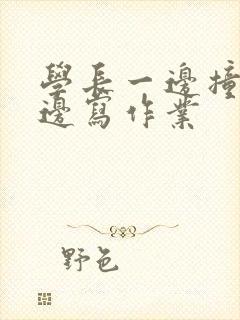 學長一邊撞
邊寫作業
野色